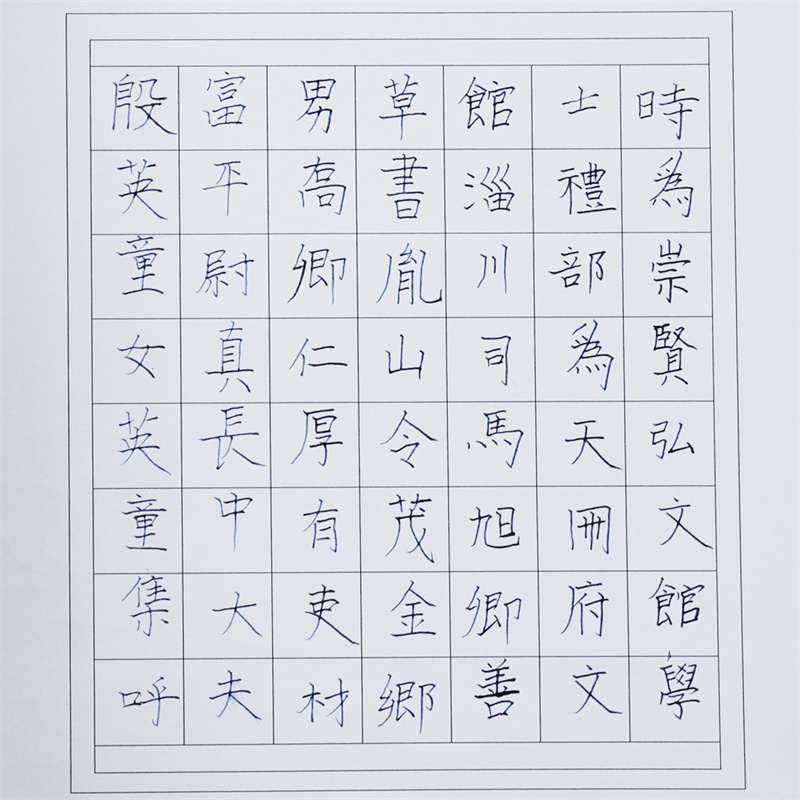 時爲崇賢弘文館學
士禮部爲天冊府文
館淄川司馬旭卿善
草書胤山令茂金鄉
男髙卿仁厚有吏材
富平尉真長中大夫
殷英童女英童集呼